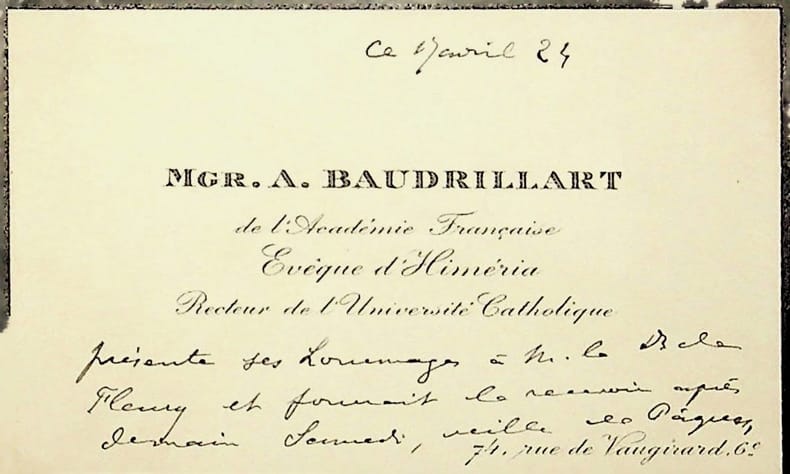 Ce 17 avril 24
MGR. A. BAUDRILLART
de l'Académie Française
Evêque d'Himéria
Recteur de l'Université Catholique
présente ses hommages à M. le Dr de
Fleury et pourrait le recevoir après
demain Samedi, veille de Pâques,
74, rue de Vaugirard. 6e